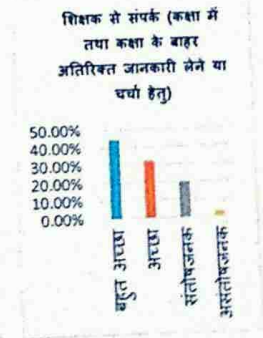 शिक्षक से संपर्क (कक्षा में
तथा कक्षा के बाहर
अतिरिक्त जानकारी लेने या
चर्चा हेतु)
50.00%
40.00%
30.00%
20.00%
10.00%
0.00%
बहुत अच्छा
अच्छा
संतोषजनक
असंतोषजनक